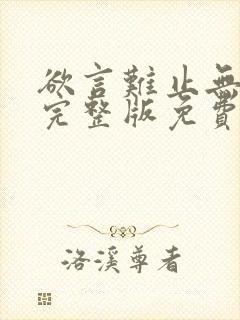 欲言難止無
完整版免費
洛溪尊者